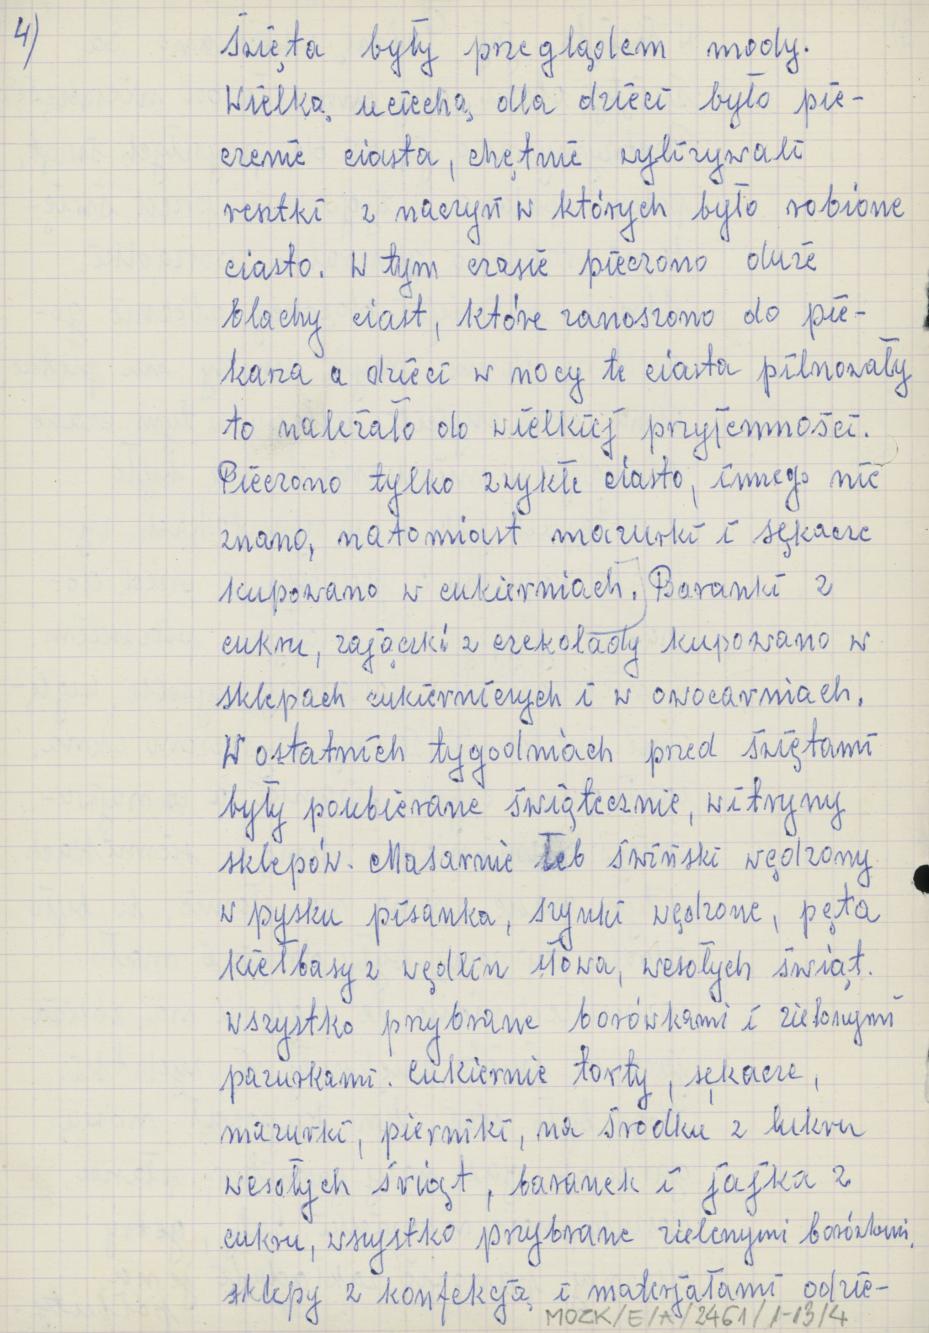 4)
Święta były przeglądem mody.
Wielką uciechą dla dzieci było pie-
czenie ciasta, chętnie wylizywali
resztki z naczyń w których było robione
ciasto. W tym czasie pieczono duże
blachy ciast, które zanoszono do pie-
karza a dzieci w nocy te ciasta pilnowały
to należało do wielkiej przyjemności.
Pieczono tylko zwykłe ciasto, innego nie
znano, natomiast mazurki i sękacze
kupowano w cukierniach. Baranki z
cukru, zajączki z czekolady kupowano w
sklepach cukierniczych i w owocarniach.
W ostatnich tygodniach przed świętami
były poubierane świątecznie, witryny
sklepów. Masarnie łeb świński wędzony
w pysku pisanka, szynki wędzone, pęta
kiełbasy z wędlin słowa, wesołych świąt.
wszystko przybrane borówkami i zielonymi
pazurkami. Cukiernie torty, sękacze,
mazurki, pierniki, na środku z lukru
wesołych świąt, baranek i jajka z
cukru, wszystko przybrane zielonymi borówkami.
sklepy z konfekcją i materjałami odzie-
MOZK/E/A/2461/1-13/4